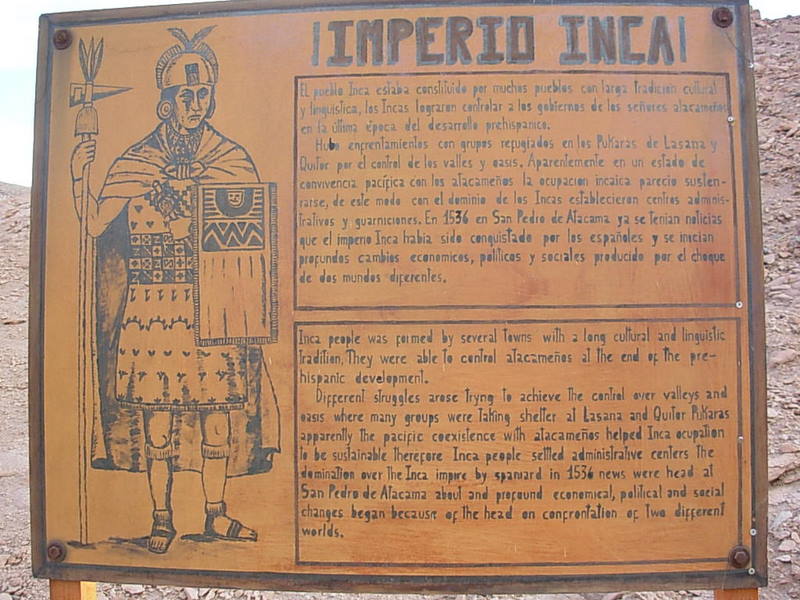 IMPERIO INCA
El pueblo Inca estaba constituido por muchos pueblos con larga tradición cultural
y linguistica, los Incas lograron controlar a los gobiernos de los señores atacameños
en la última epoca del desarrollo prehispanico.
Hubo enfrentamientos con grupos refugiados en los Pukaras de Lasana y
Quitor por el control de los valles y oasis. Aparentemente en un estado de
convivencia pacífica con los atacameños la ocupacion incaica parecio susten-
tarse, de este modo con el dominio de los Incas establecieron centros adminis-
trativos y guarniciones. En 1536 en San Pedro de Atacama ya se tenian noticias
que el imperio Inca habia sido conquistado por los españoles y se inician
profundos cambios economicos, políticos y sociales producido por el choque
de dos mundos diferentes.
Inca people was formed by several towns with a long cultural and linguistic
tradition, They were able to control atacameños at the end of the pre-
hispanic development.
Different struggles arose tryng to achieve the control over valleys and
oasis where many groups were taking shelter at Lasana and Quitor Pukaras
apparently the pacific coexistence with atacameños helped Inca ocupation
to be sustainable therefore Inca people settled administrative centers the
domination over the Inca impire by spaniard in 1536 news were head at
San Pedro de Atacama about and profound economical, political and social
changes began because of the head on confrontation of two different
worlds.